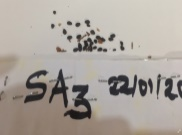 SA3 22/01/20